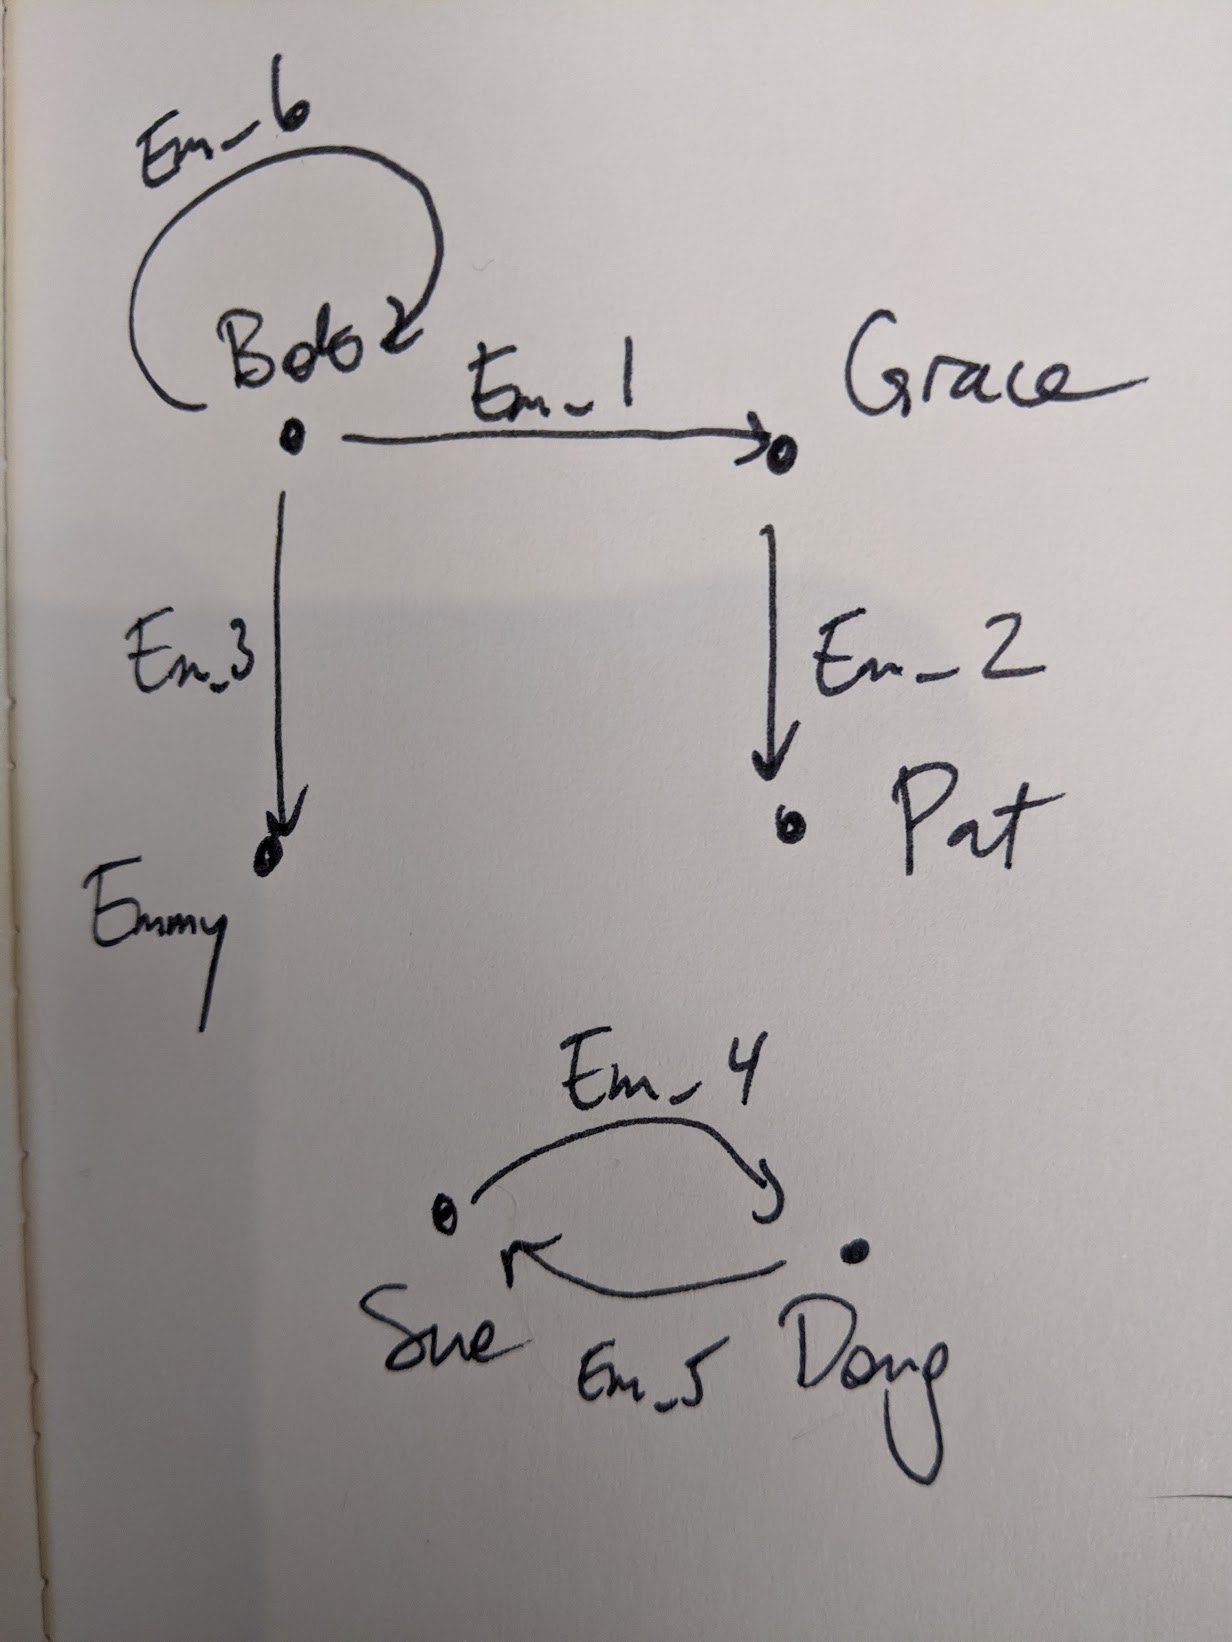 Em_6
Bob
Em_1
Grace
Em_3
Em_2
Pat
Emmy
Em_4
Sue
Em_5
Doug